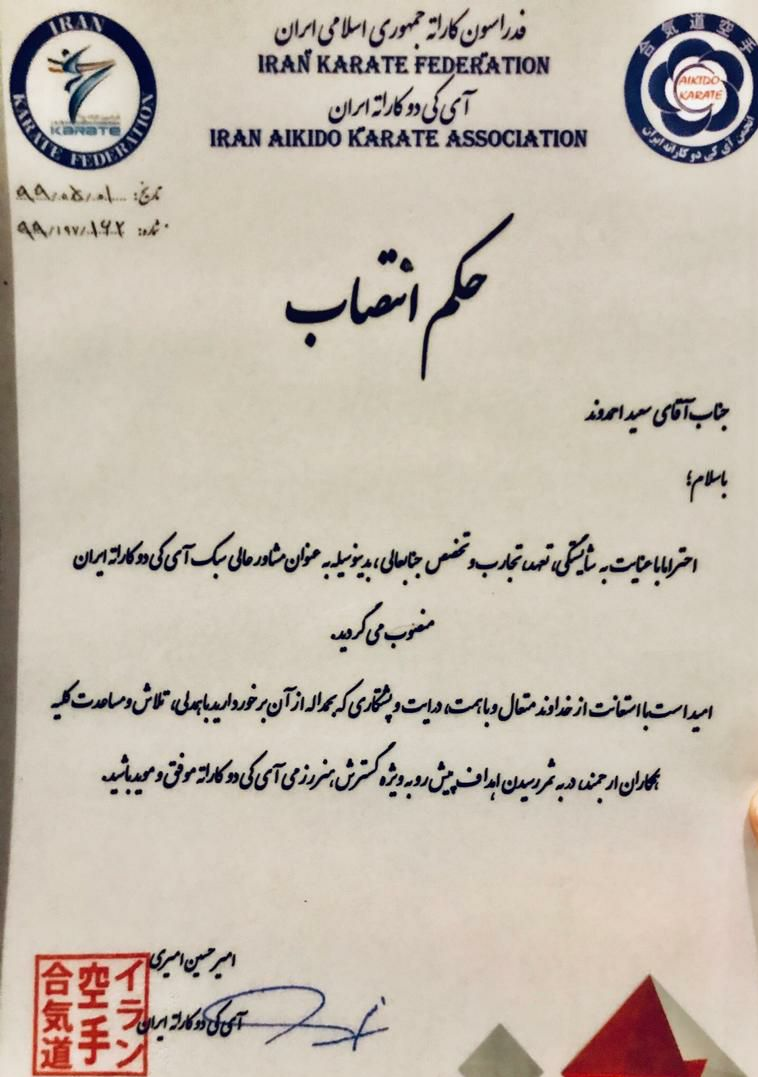 IRAN
KARATE FEDERATION
KARATE
فدراسیون کاراته جمهوری اسلامی ایران
IRAN KARATE FEDERATION
آی کی دو کاراته ایران
IRAN AIKIDO KARATE ASSOCIATION
合気道空手
AIKIDO
KARATE
انجمن آی کی دو کاراته ایران
تاریخ: ۹۹/۰۵/۰۱
شماره: ۹۹/۱۹۷/۱۶۲
حکم انتصاب
جناب آقای سعید احمدوند
باسلام؛
احتراما با عنایت به شایستگی، تعهد، تجارب و تخصص جنابعالی، بدینوسیله به عنوان مشاور عالی سبک آی کی دو کاراته ایران
منصوب می گردید.
امید است با استعانت از خداوند متعال و با همت، درایت و پشتکاری که بحمداله از آن برخوردارید با همدلی، تلاش و مساعدت کلیه
همکاران ارجمند، در به ثمر رسیدن اهداف پیش رو به ویژه گسترش هنر رزمی آی کی دو کاراته موفق و موید باشید.
امیرحسین امیری
آی کی دو کاراته ایران
イラン
空手
合気道